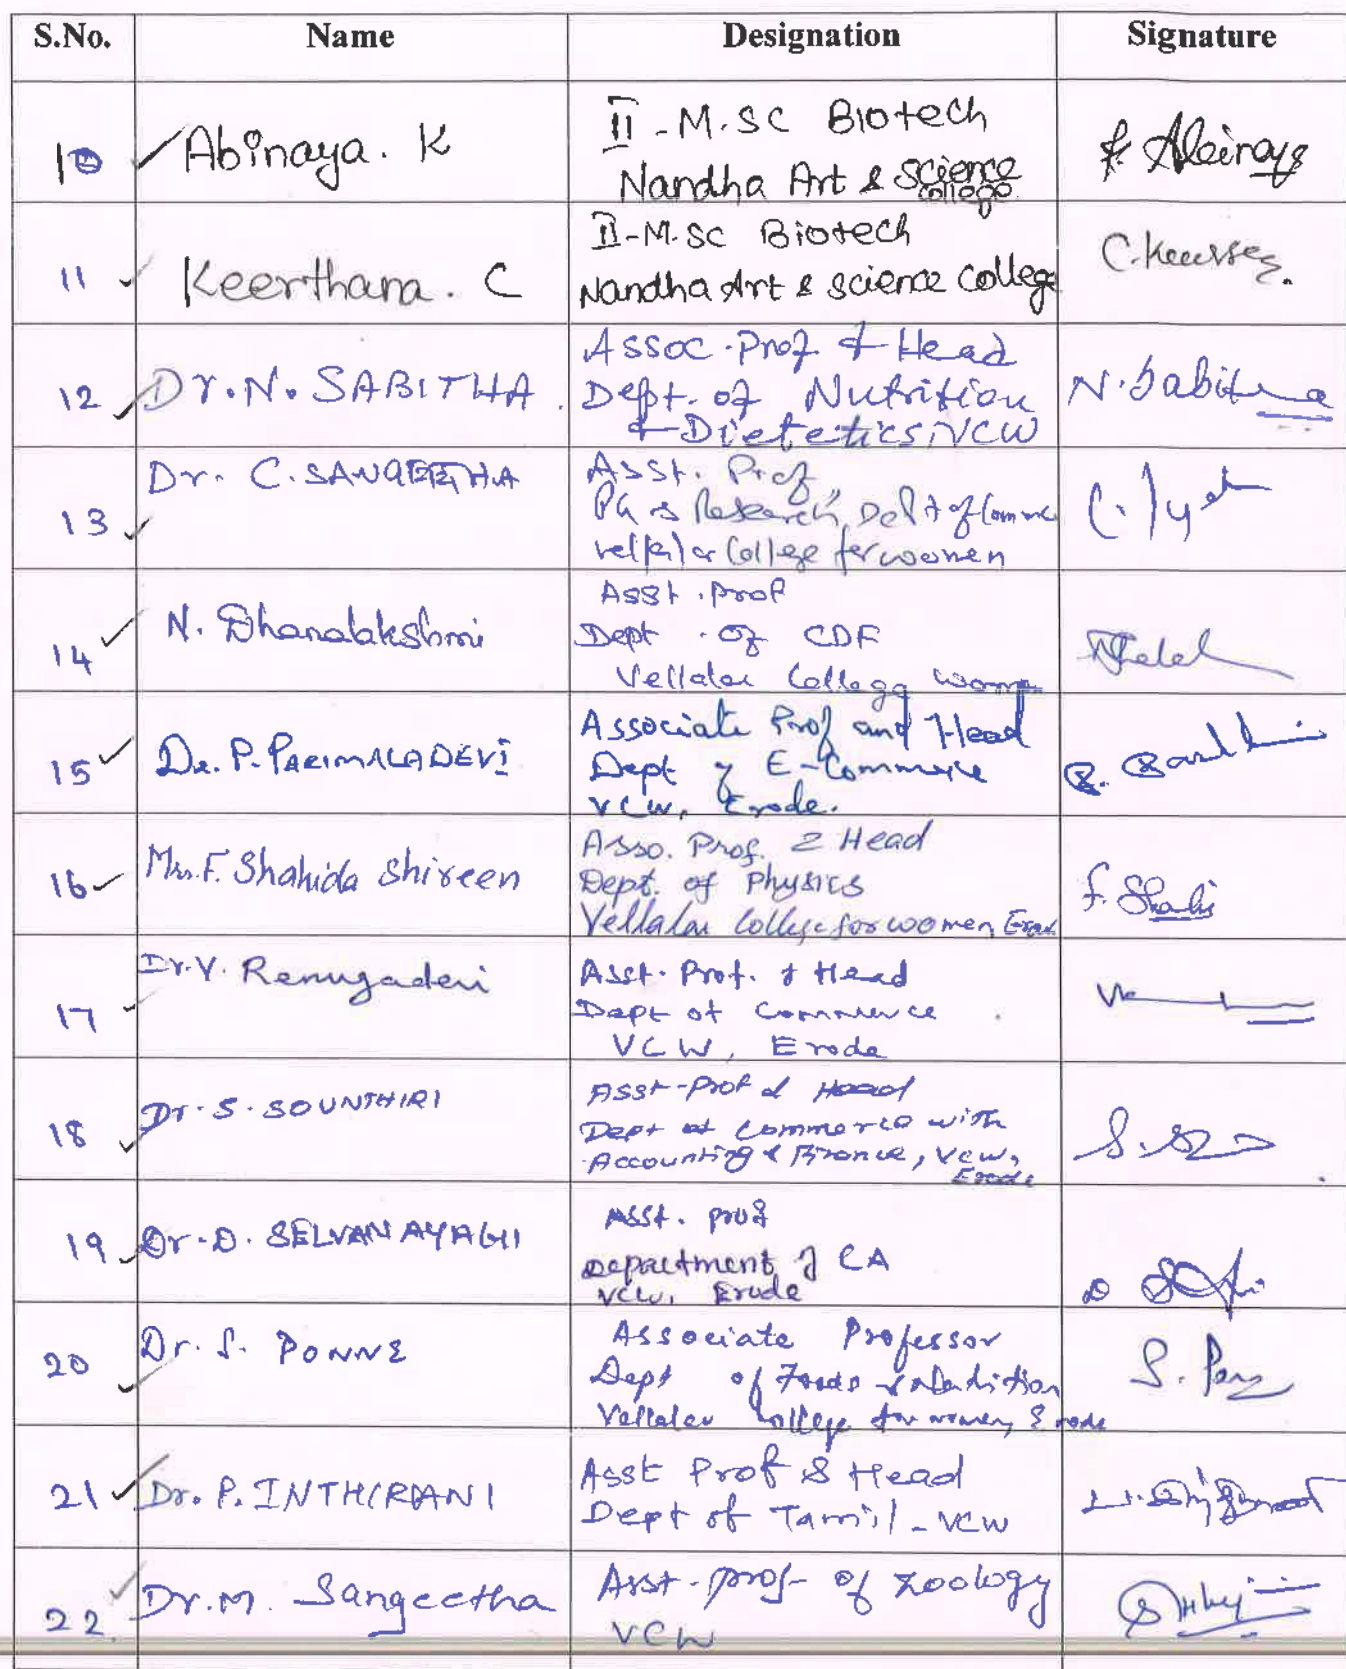 S.No. Name Designation Signature
10 Abinaya. K II - M.SC Biotech
Nandha Art & Science
college
11 Keerthana. C II-M.SC Biotech C.
Nandha Art & science College
12 Dr. N. SABITHA. Assoc. Prof & Head N. Sabitha
Dept. of Nutrition
& Dietetics, VCW
13 Dr. C. SANGEETHA Asst. Prof, C.
PG & Research Dept of Comme
vellalar College for women
14 N. Dhanalakshmi Asst. prof
Dept. of CDF
Vellalar College women
15 Dr. P. PARIMALADEVI Associate Prof and Head
Dept of E-Commerce
VCW, Erode.
16 Mrs. F. Shahida Shireen Asso. Prof. & Head F.
Dept. of Physics
Vellalar College for women, Erode
17 Dr. V. Renugadevi Asst. Prof. & Head
Dept of Commerce
VCW, Erode
18 Dr. S. SOUNTHIRI Asst-Prof & Head S.
Dept of Commerce with
Accounting & Finance, VCW,
Erode
19 Dr. D. SELVANAYAGHI Asst. prof D
Department of CA
VCW, Erode
20 Dr. S. PONNE Associate Professor S.
Dept of Foods & Nutrition
Vellalar College for women, Erode
21 Dr. P. INTHIRANI Asst Prof & Head
Dept of Tamil - VCW
22. Dr. M. Sangeetha Asst. prof- of zoology
VCW